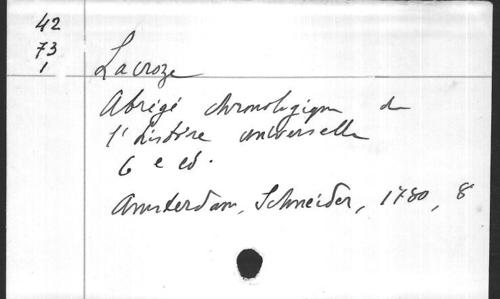 42
73
1
Lacroze
Abrégé chronologique de
l'histoire universelle
6 e ed.
Amsterdam, Schneider, 1780, 8